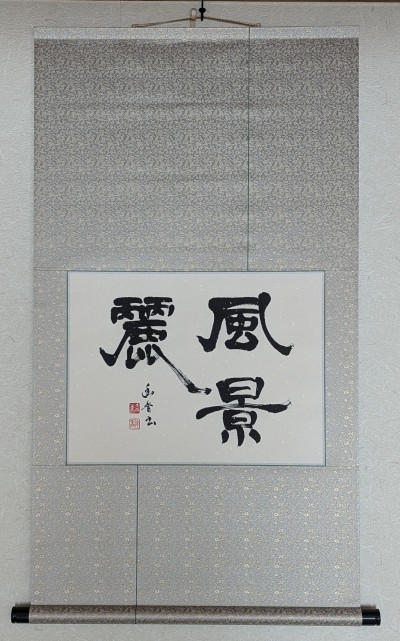 風景
麗